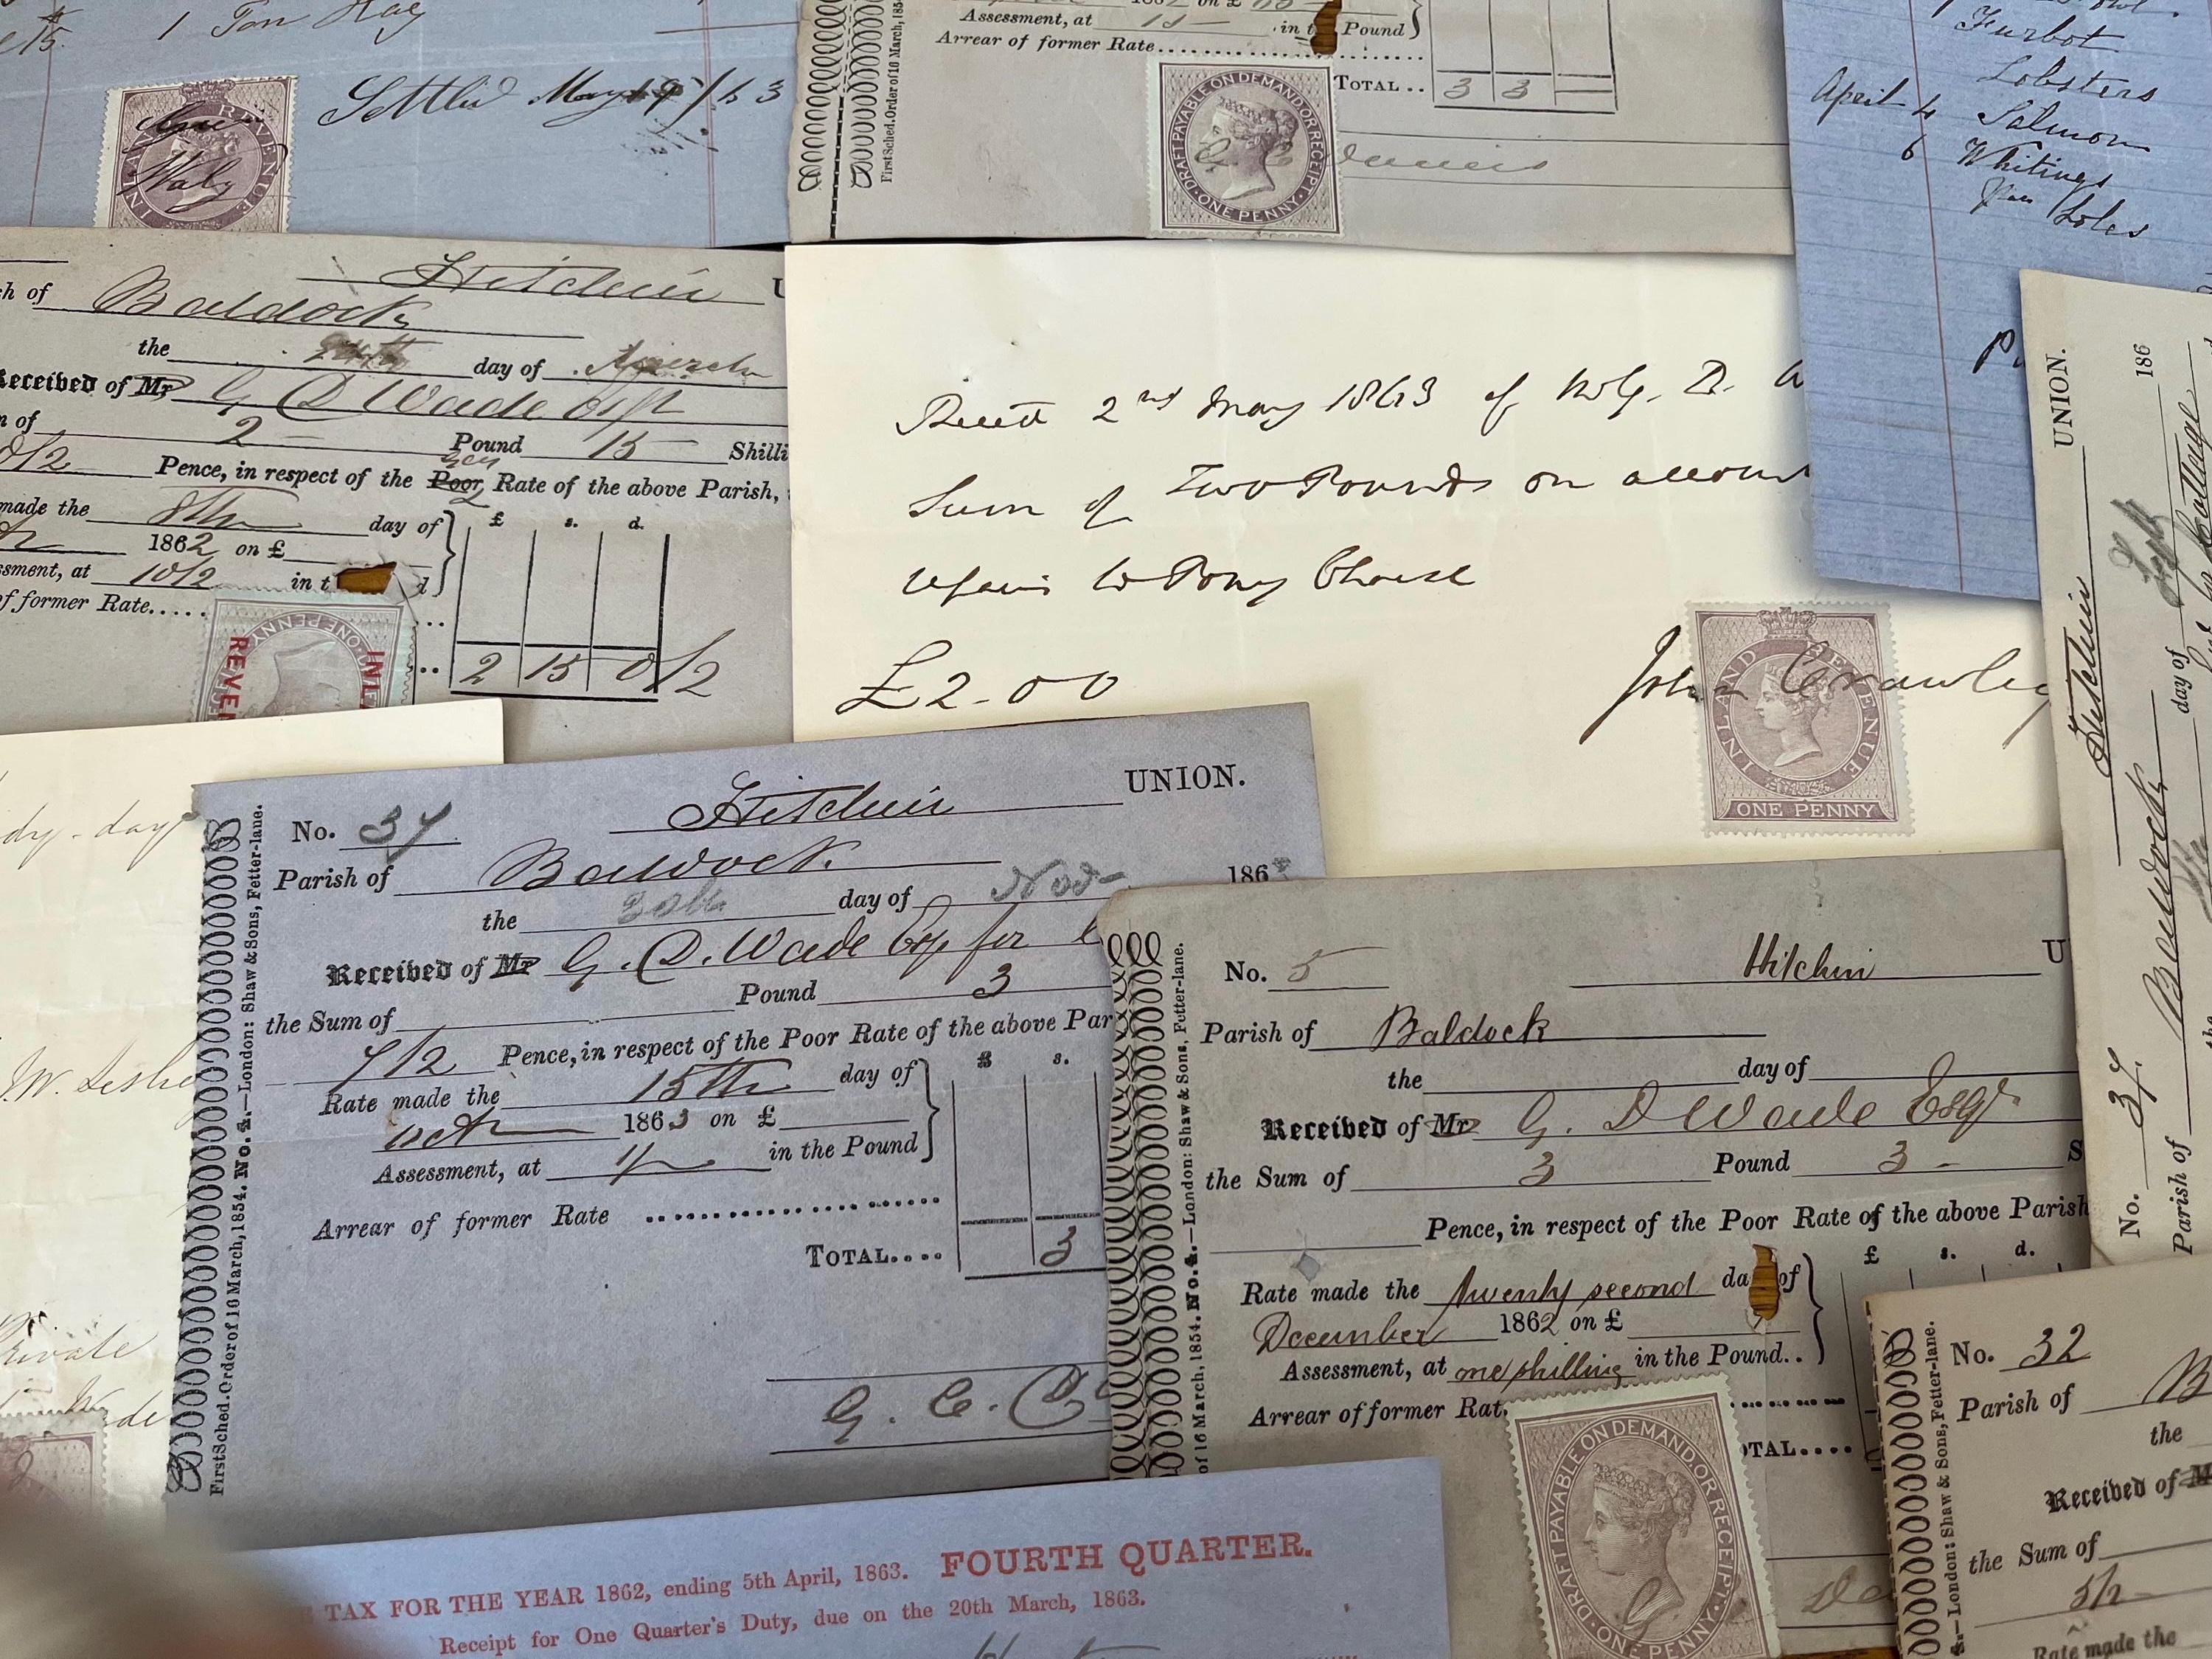 1 Ton Hay
Settled May 19/63
INLAND REVENUE
186 on £
Assessment, at 1s — in t Pound
Arrear of former Rate
TOTAL.. 3 3 —
First Sched. Order of 16 March, 185
DRAFT PAYABLE ON DEMAND. OR RECEIPT.
ONE PENNY
Turbot
Lobsters
April 4 Salmon
6 Whitings
Soles
Hitchin U
h of Baldock
the day of March
Received of Mr G D Wade Esqr
n of 2 — Pound 15 Shilli
0/2 Pence, in respect of the Poor Rate of the above Parish,
made the 8th day of
1862 on £
£ s. d.
sment, at 10/2 in t d
of former Rate.....
2 15 0/2
ONE PENNY
REVE
INLA
2nd May 1863 of
Sum of Two Pounds on accoun
to Pony Chaise
£2-0 0
John Crawley
INLAND REVENUE
ONE PENNY
dy-day
Private
de
Hitchin UNION.
No. 37
Parish of Baldock 186
the 30th day of Nov-
Received of Mr G. D. Wade Esq for
the Sum of Pound 3
7/2 Pence, in respect of the Poor Rate of the above Par
Rate made the 15th day of
Oct 1863 on £
£ s.
Assessment, at 1/- in the Pound
Arrear of former Rate
TOTAL.... 3
G. C.
First Sched. Order of 16 March, 1854. No. 4.—London: Shaw & Sons, Fetter-lane.
No. 5 Hitchin U
Parish of Baldock
the day of
Received of Mr G. D Wade Esqr
the Sum of 3 Pound 3 - S
Pence, in respect of the Poor Rate of the above Parish
Rate made the twenty second da of
£ s. d.
December 1862 on £
Assessment, at one shilling in the Pound..
Arrear of former Rat
OTAL....
of 16 March, 1854. No. 4.—London: Shaw & Sons, Fetter-lane.
DRAFT PAYABLE ON DEMAND. OR RECEIPT.
ONE PENNY
Hitchin UNION.
186
No. 37. Parish of Baldock
the day of
Cottage
No. 32
Parish of B
the
Received of M
the Sum of
5/2
Rate made the
4.—London: Shaw & Sons, Fetter-lane.
TAX FOR THE YEAR 1862, ending 5th April, 1863. FOURTH QUARTER.
Receipt for One Quarter's Duty, due on the 20th March, 1863.